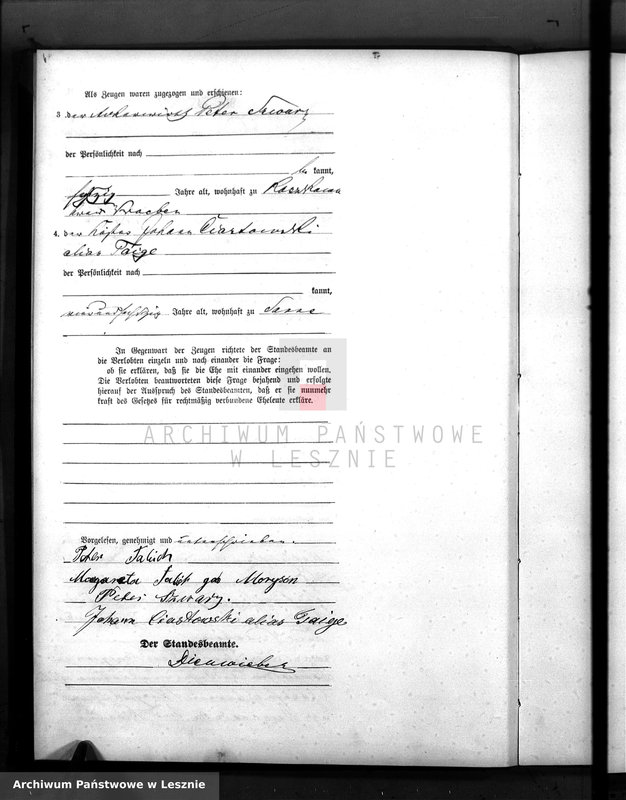 Als Zeugen waren zugezogen und erschienen:
3 der Ackerwirth Peter Szwarz
der Persönlichkeit nach
bekannt,
fünfzig Jahre alt, wohnhaft zu
Kreis
4. der Johann Ciastowski
alias Taige
der Persönlichkeit nach
kannt,
Jahre alt, wohnhaft zu
In Gegenwart der Zeugen richtete der Standesbeamte an
die Verlobten einzeln und nach einander die Frage:
ob sie erklären, daß sie die Ehe mit einander eingehen wollen.
Die Verlobten beantworteten diese Frage bejahend und erfolgte
hierauf der Ausspruch des Standesbeamten, daß er sie nunmehr
kraft des Gesetzes für rechtmäßig verbundene Eheleute erkläre.
ARCHIWUM PAŃSTWOWE
W LESZNIE
Vorgelesen, genehmigt und unterschrieben.
Peter
Margareta geb
Peter Szwarz.
Johann Ciastowski alias Taige
Der Standesbeamte.
Archiwum Państwowe w Lesznie